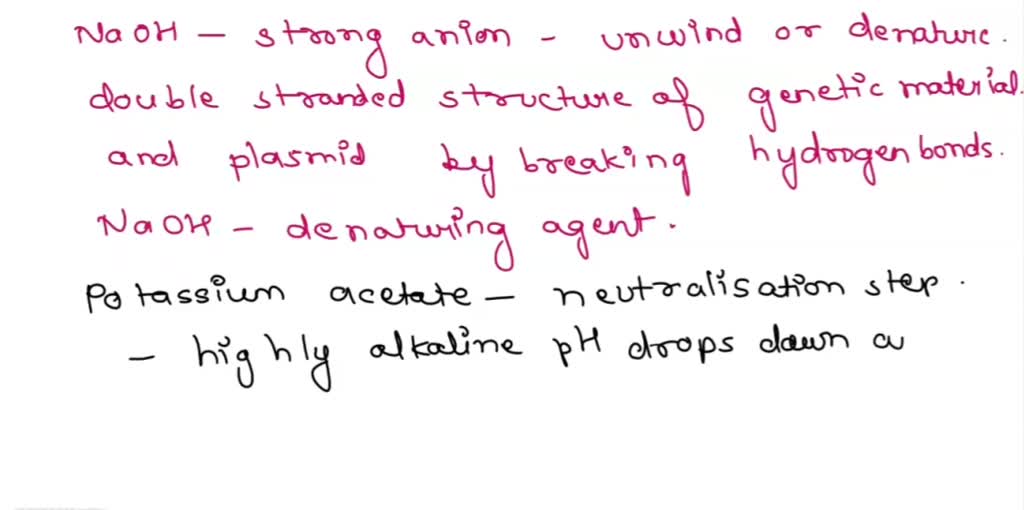 NaOH - strong anion - unwind or denature.
double stranded structure of genetic material.
and plasmid by breaking hydrogen bonds.
NaOH - denaturing agent.
Potassium acetate - neutralisation step.
- highly alkaline pH drops down a